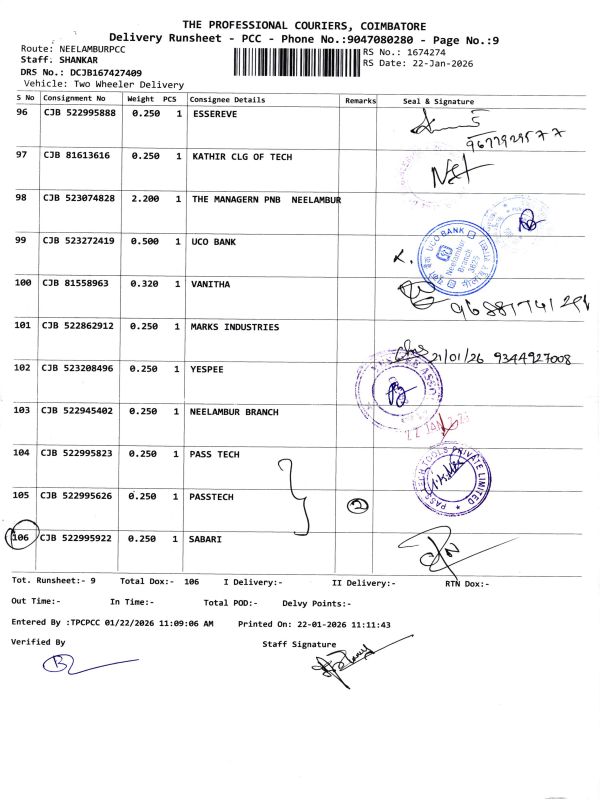 THE PROFESSIONAL COURIERS, COIMBATORE
Delivery Runsheet - PCC - Phone No.:9047080280 - Page No.:9
Route: NEELAMBURPCC
RS No.: 1674274
Staff: SHANKAR
RS Date: 22-Jan-2026
DRS No.: DCJB167427409
Vehicle: Two Wheeler Delivery
S No Consignment No Weight PCS Consignee Details Remarks Seal & Signature
96 CJB 522995888 0.250 1 ESSEREVE
97 CJB 81613616 0.250 1 KATHIR CLG OF TECH
98 CJB 523074828 2.200 1 THE MANAGERN PNB NEELAMBUR
99 CJB 523272419 0.500 1 UCO BANK
UCO BANK
Neelambur
Branch
3825
100 CJB 81558963 0.320 1 VANITHA
101 CJB 522862912 0.250 1 MARKS INDUSTRIES
21/01/26 9344927008
102 CJB 523208496 0.250 1 YESPEE
103 CJB 522945402 0.250 1 NEELAMBUR BRANCH
104 CJB 522995823 0.250 1 PASS TECH
PASS TECH TOOLS PRIVATE LIMITED
105 CJB 522995626 0.250 1 PASSTECH 2
106 CJB 522995922 0.250 1 SABARI
Tot. Runsheet:- 9 Total Dox:- 106 I Delivery:- II Delivery:- RTN Dox:-
Out Time:- In Time:- Total POD:- Delvy Points:-
Entered By :TPCPCC 01/22/2026 11:09:06 AM Printed On: 22-01-2026 11:11:43
Verified By Staff Signature